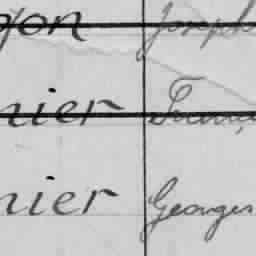 gon Joseph
nier Franç
nier Georges